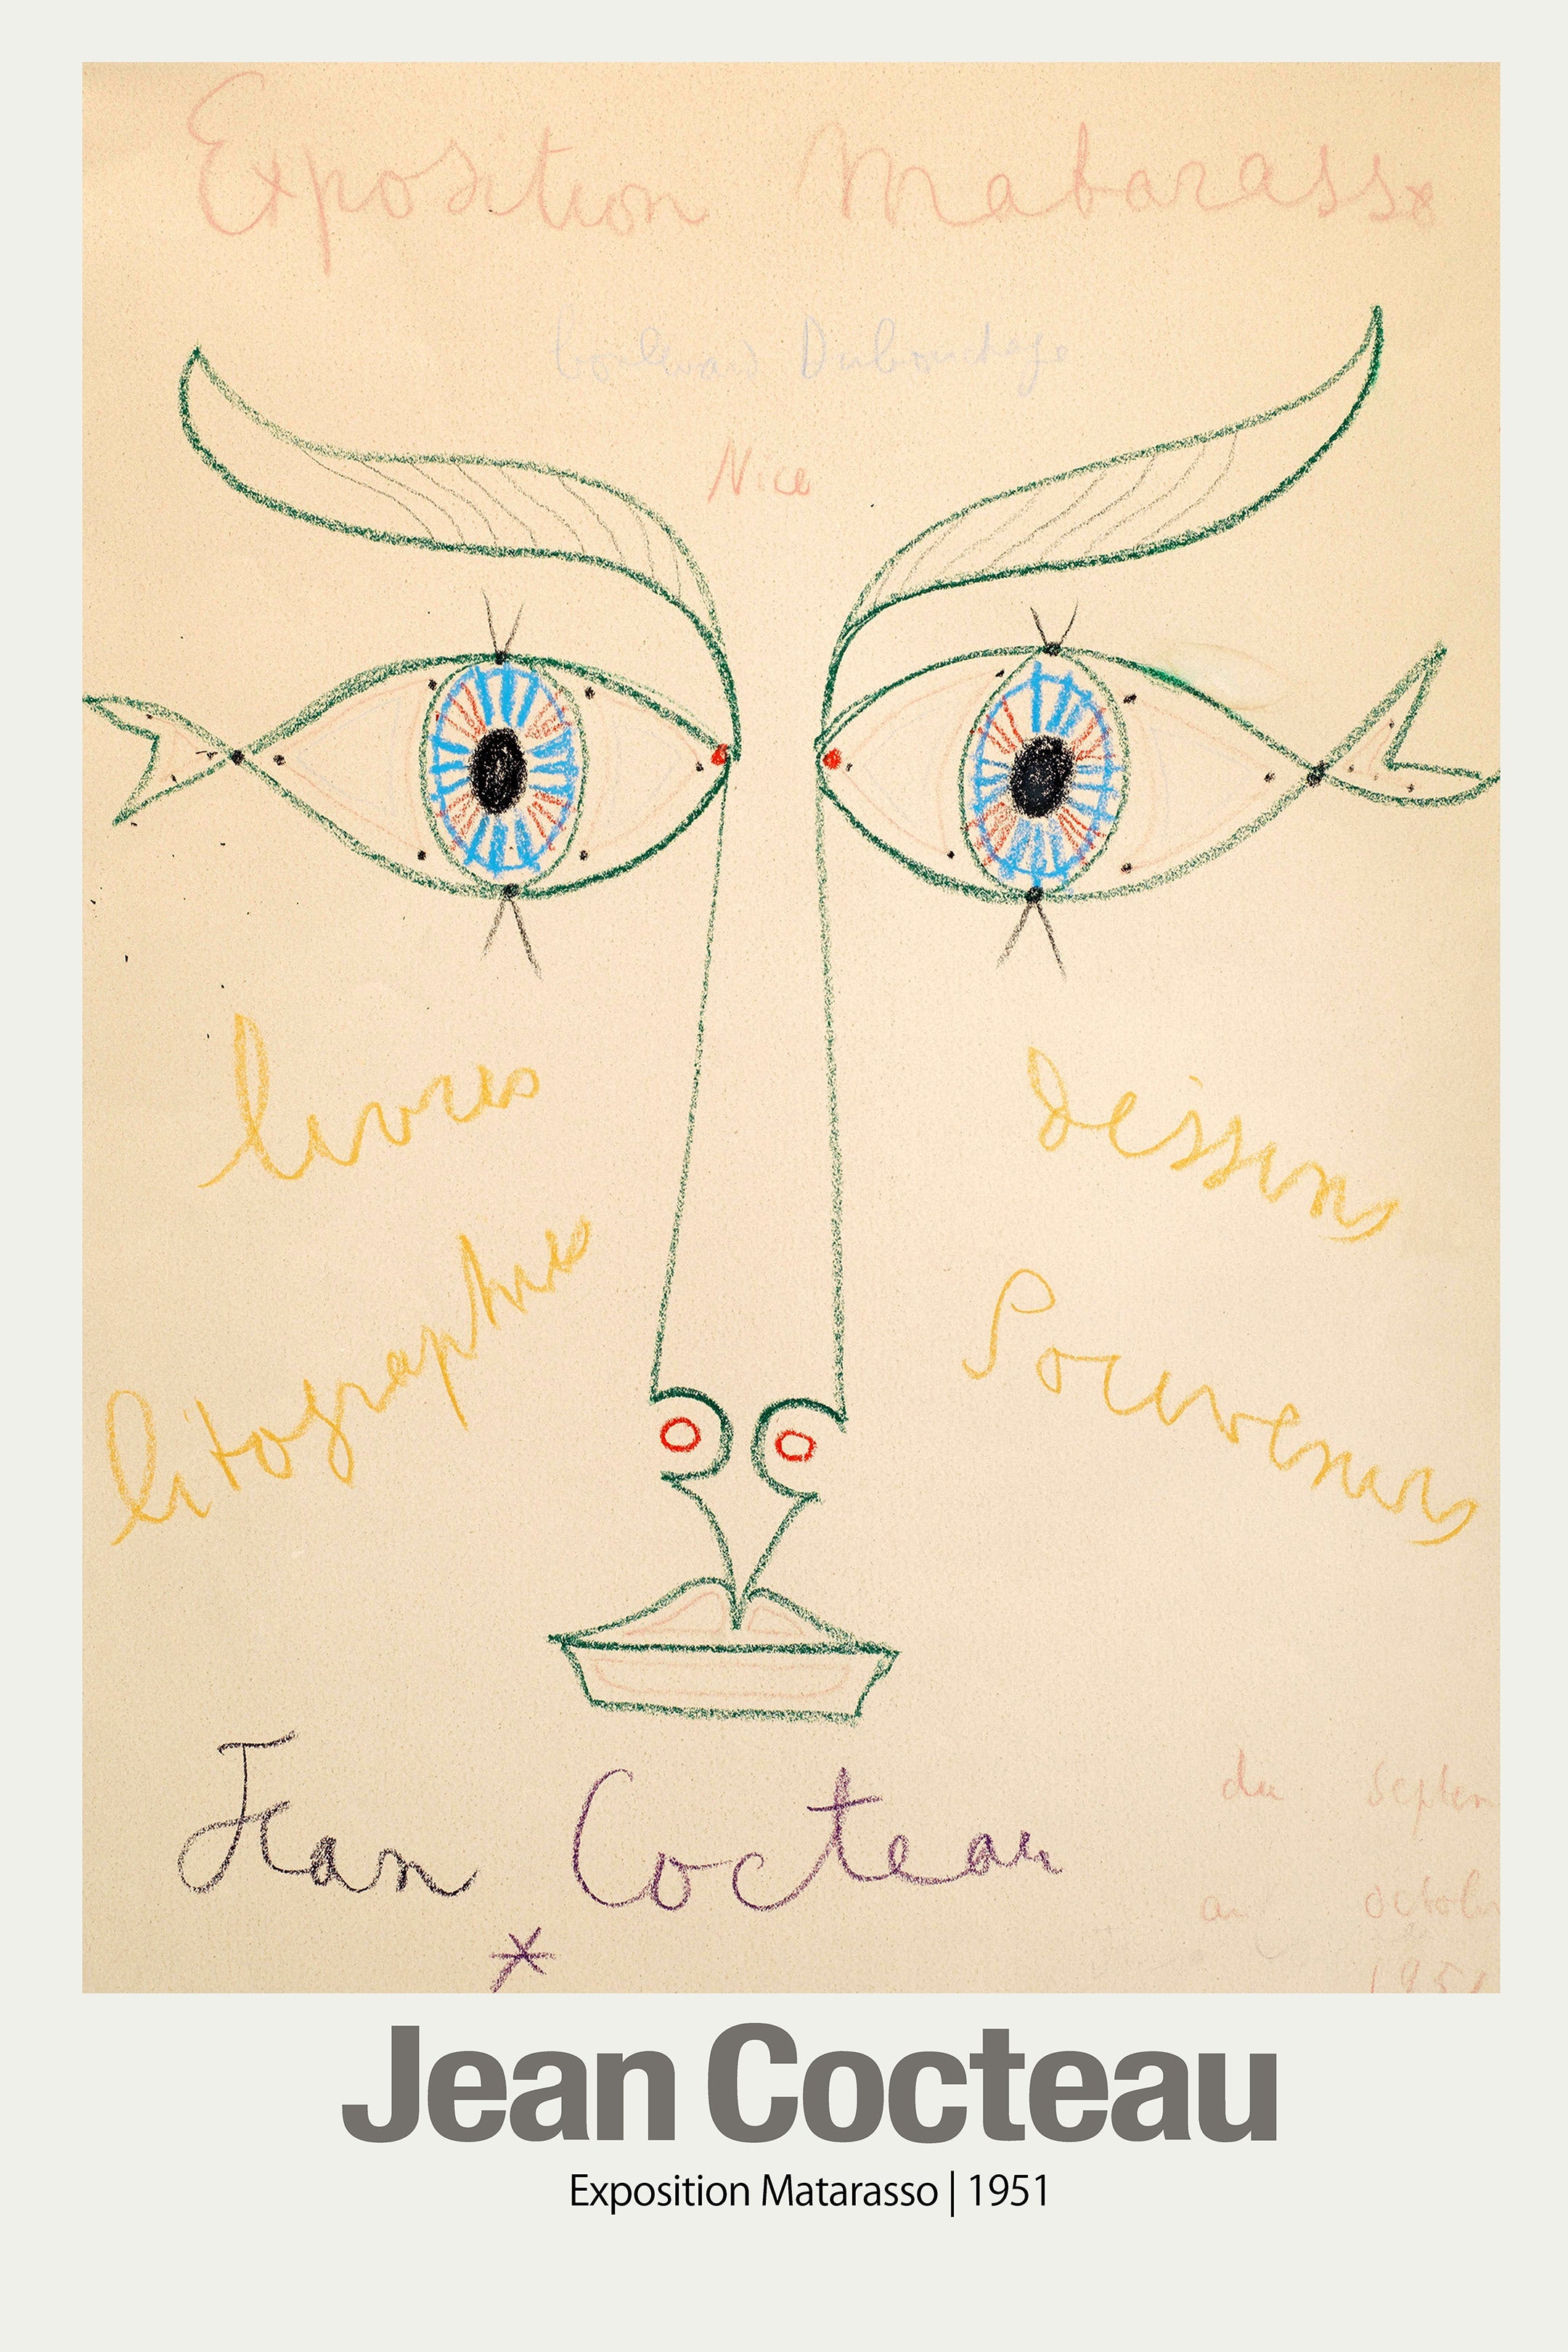 Exposition Matarasso
boulevard Dubouchage
Nice
livres
dessins
litographies
Souvenirs
Jean Cocteau
du septem
au octobr
1951
Jean Cocteau
Exposition Matarasso | 1951